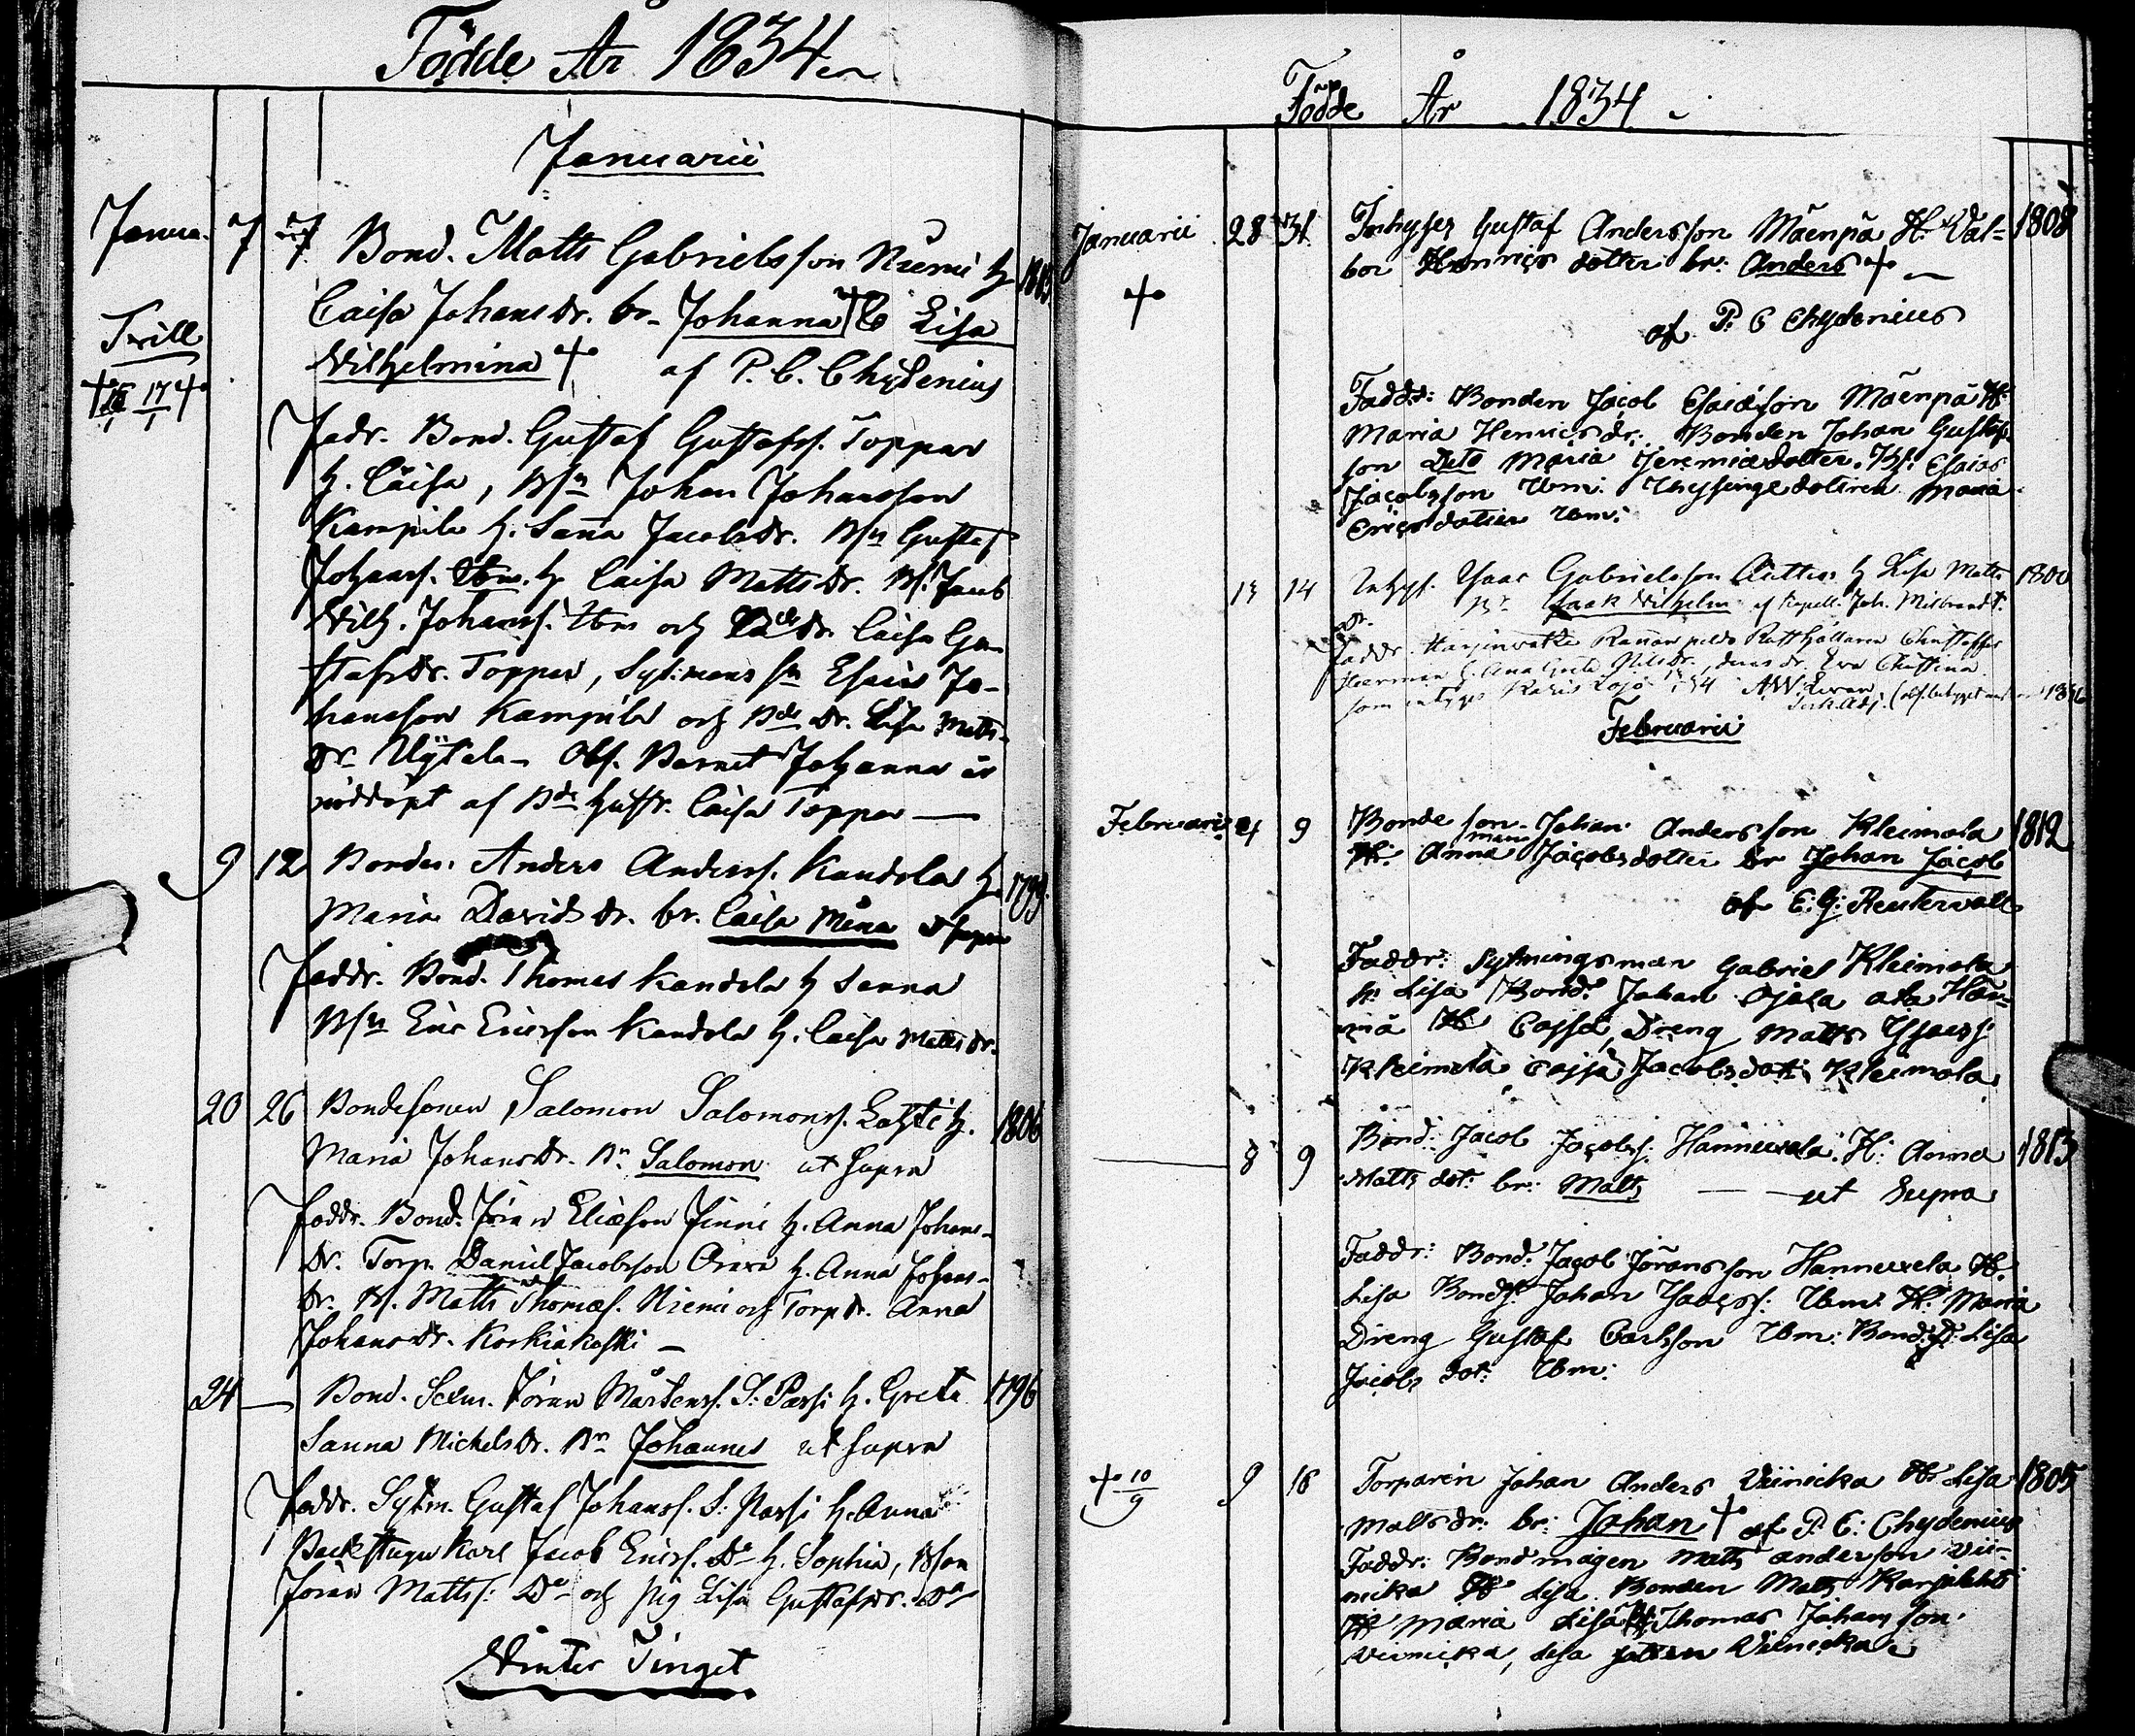 Födde År 1834
Januarii
Janua. 7 7 Bond. Matts Gabrielsson Niemi H
Caisa Johansdr. br. Johanna † & Lisa
Trill
Wilhelmina † af P. C. Chydenius
17
Fadr. Bond. Gustaf Gustafss. Toppar
h. Caisa, Bsn Johan Johansson
Kampila h. Sanna Jacobsdr. Bsn Gustaf
Johanss. Ibm. h Caisa Mattsdr. Bs. Jacob
Wilh. Johanss. Ibm och Bdedr. Caisa Gu-
stafsdr. Toppar, Sytnmans sn Esaias Jo-
hansson Kampila och Bde dr. Lisa Matts-
dr. Obs. Barnet Johanna är
nöddöpt af Bde hustr. Caisa Toppar —
9 12 Bonden Anders Anderss. Kandola h. 1799.
Maria Davidsdr. br. Caisa Mina ut supra
Faddr. Bond. Thomas Kandola h Sanna
Bsn Eric Ericsson Kandola h. Caisa Mattsdr.
20 26 Bondesonen Salomon Salomonss. Lahti h. 1806
Maria Johansdr. Bn Salomon ut supra
Faddr. Bond. Jöran Eliasson Finni h. Anna Johans-
dr. Torp. Daniel Jacobsson Orava h. Anna Johans-
dr. Bs. Matts Thomæs. Niemi och Torpdr. Anna
Johansdr. Koskiakoski —
24 — Bond. Jöran Mårtenss. S: Passi h. Greta 1796
Sanna Michelsdr. Bn Johannes ut supra
Faddr. Sytm. Gustaf Johanss. S: Passi h. Anna
Backstugu Karl Jacob Ericss. Do h. Sophia, Bson
Jöran Mattss: Do och pig Lisa Gustafsdr. Do
Winter Tinget
Födde År 1834
Januarii 28 31 Inhyses Gustaf Andersson Mäenpä H: Val- 1808
bor Henrics dotter br: Anders †
af P. C Chydenius
Faddr: Bonden Jacob Esaiæson Mäenpä H:
Maria Henricsdr: Bonden Johan Gustaf
son Dito Maria Jeremiædotter. Bs: Esaias
Jacobsson Ibm: Inhysinge dottren Maria
Ericsdotter Ibm:
13 14 Inhys. Isaac Gabrielsson h Lisa Matts 1800
dr. Bn Isaak Wilhelm af Kapell. Joh.
Faddr.
h. Ana Greta Nilsdr., deras dr. Eva Christina
som intygas
Februarii
Februarii 4 9 Bonde son-man Johan Andersson Kleimola 1812
H: Anna Jacobsdotter br Johan Jacob
af E: G: Reuterwall
Faddr: Sytningsman Gabriel Kleimola
h: Lisa Bond: Johan Ojala
H: Cajsa, Dreng Matts
Kleimola Cajsa Jacobsdott: Kleimola
8 9 Bond: Jacob Jacobs: Hannuxela: H: Anna 1813
Matts dot: br: Matts — ut Supra
Faddr: Bond: Jacob Jöransson Hannuxela H:
Lisa Bonds: Johan Isacss: Ibm: H: Maria
Dreng Gustaf Carlsson Ibm: Bond:d: Lisa
Jacobs dot: Ibm:
† 10/9 9 16 Torparen Johan Anders Viinicka H: Lisa 1805
Mattsdr: br: Johan † af P. C: Chydenius
Faddr: Bondmågen Matts anderson Vii-
nicka H Lisa Bonden Matts Karjalahti
H Maria Lisa Bs: Thomas Johansson
Viinicka, Lisa Viinicka